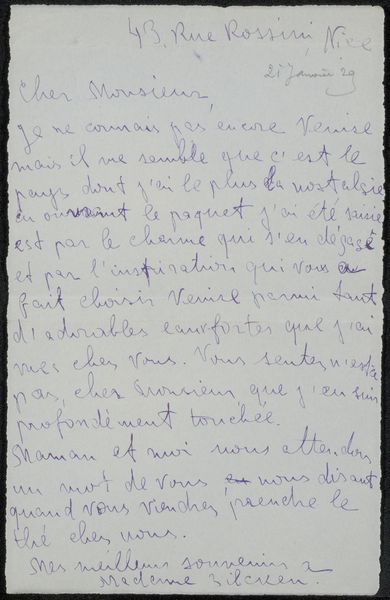 43, Rue Rossini, Nice
21 Janvier 29
Cher Monsieur,
Je ne connais pas encore Venise
mais il me semble que c'est le
pays dont j'ai le plus la nostalgie
en ouvrant le paquet j'ai été saisie
et par le charme qui s'en dégage
et par l'inspiration qui vous a
fait choisir Venise parmi tant
d'adorables eauxfortes que j'ai
vues chez vous. Vous sentez n'est ce
pas, cher Monsieur que j'en suis
profondément touchée.
Maman et moi nous attendons
un mot de vous nous disant
quand vous viendrez prendre le
thé chez nous.
Mes meilleurs souvenirs à
Madame Zilcken.